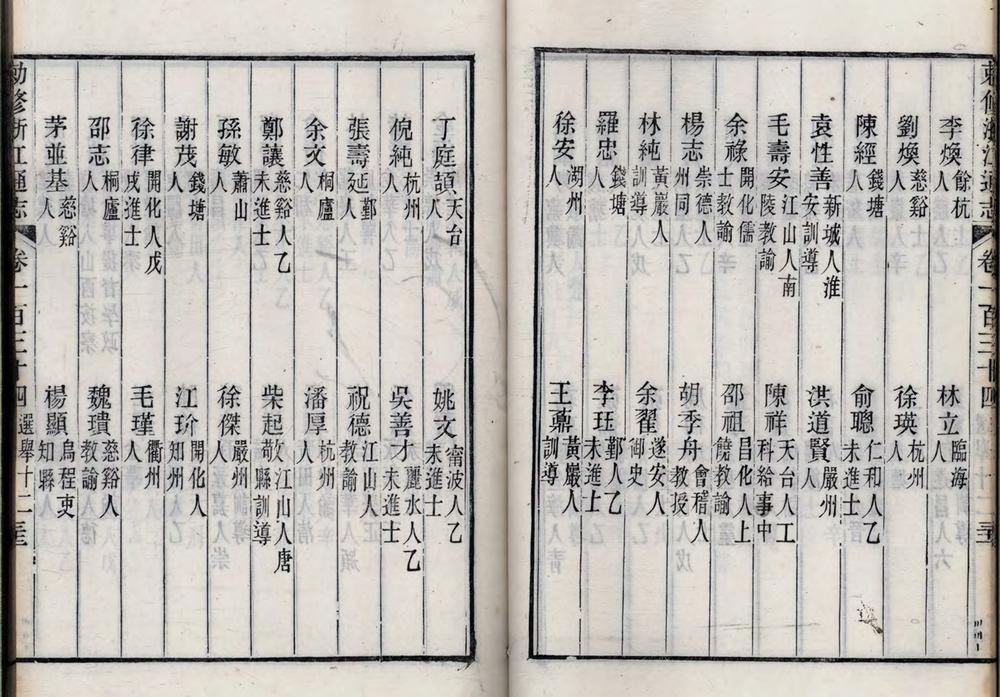 敕修浙江通志 卷一百三十四
李煥 餘杭人 林立 臨海人
劉煥 慈谿人 徐瑛 杭州人
陳經 錢塘人 俞聰 仁和人乙未進士
袁性善 新城人淮安訓導 洪道賢 嚴州人
毛壽安 江山人南陵教諭 陳祥 天台人工科給事中
余祿 開化儒士教諭 邵祖 昌化人上饒教諭
楊志 崇德人州同 胡季舟 會稽人教授
林純 黃巖人訓導 余翟 遂安人御史
羅忠 錢塘人 李珏 鄞人乙未進士
徐安 湖州人 王鼒 黃巖人訓導
丁庭 天台人 姚文 甯波人乙未進士
倪純 杭州人 吳善才 麗水人乙未進士
張壽 鄞人 祝德 江山人教諭
余文 桐廬人 潘厚 杭州人
鄭讓 慈谿人乙未進士 柴起敂 江山人唐縣訓導
孫敏 蕭山人 徐傑 嚴州人
謝茂 錢塘人 江玠 開化人知州
徐律 開化人戊戌進士 毛瑾 衢州人
邵志 桐廬人 魏瓂 慈谿人教諭
茅並基 慈谿人 楊顯 烏程吏知縣
勅修浙江通志 卷一百三十四 選舉十二